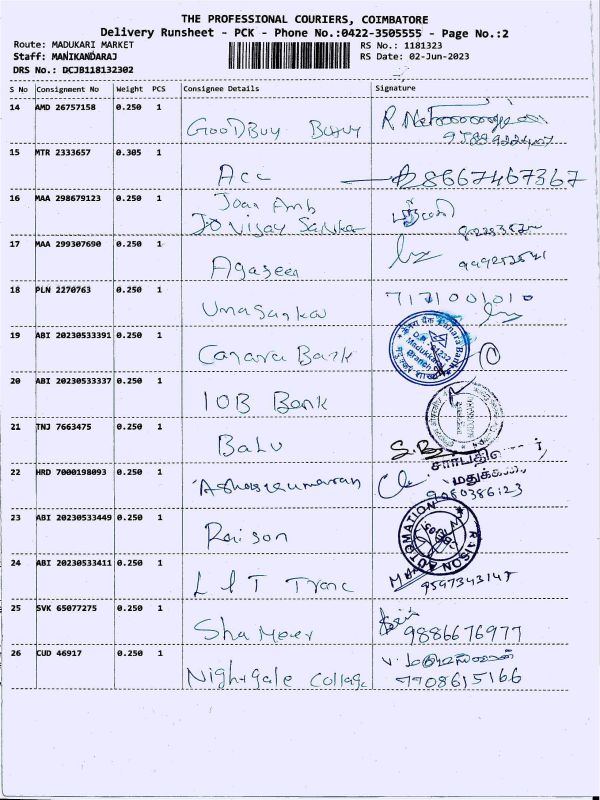 THE PROFESSIONAL COURIERS, COIMBATORE
Delivery Runsheet - PCK - Phone No.:0422-3505555 - Page No.:2
Route: MADUKARI MARKET RS No.: 1181323
Staff: MANIKANDARAJ RS Date: 02-Jun-2023
DRS No.: DCJB118132302
S No Consignment No Weight PCS Consignee Details Signature
14 AMD 26757158 0.250 1 GOODBUY
15 MTR 2333657 0.305 1 Acc 8667467367
16 MAA 298679123 0.250 1
JO Vijay Sankar
17 MAA 299307690 0.250 1 Agaseen
18 PLN 2270763 0.250 1 Umasankar 7171001010
19 ABI 20230533391 0.250 1 Canara Bank
Canara Bank
Madukkarai
Branch
20 ABI 20230533337 0.250 1 IOB Bank
21 TNJ 7663475 0.250 1 Balu
22 HRD 7000198093 0.250 1 Ashokkumaran
23 ABI 20230533449 0.250 1 Raison
RAISON AUTOMATION
24 ABI 20230533411 0.250 1 L&T Tranc 9597343147
25 SVK 65077275 0.250 1 Shameer 9886676977
26 CUD 46917 0.250 1 Nightgale College 7708615166